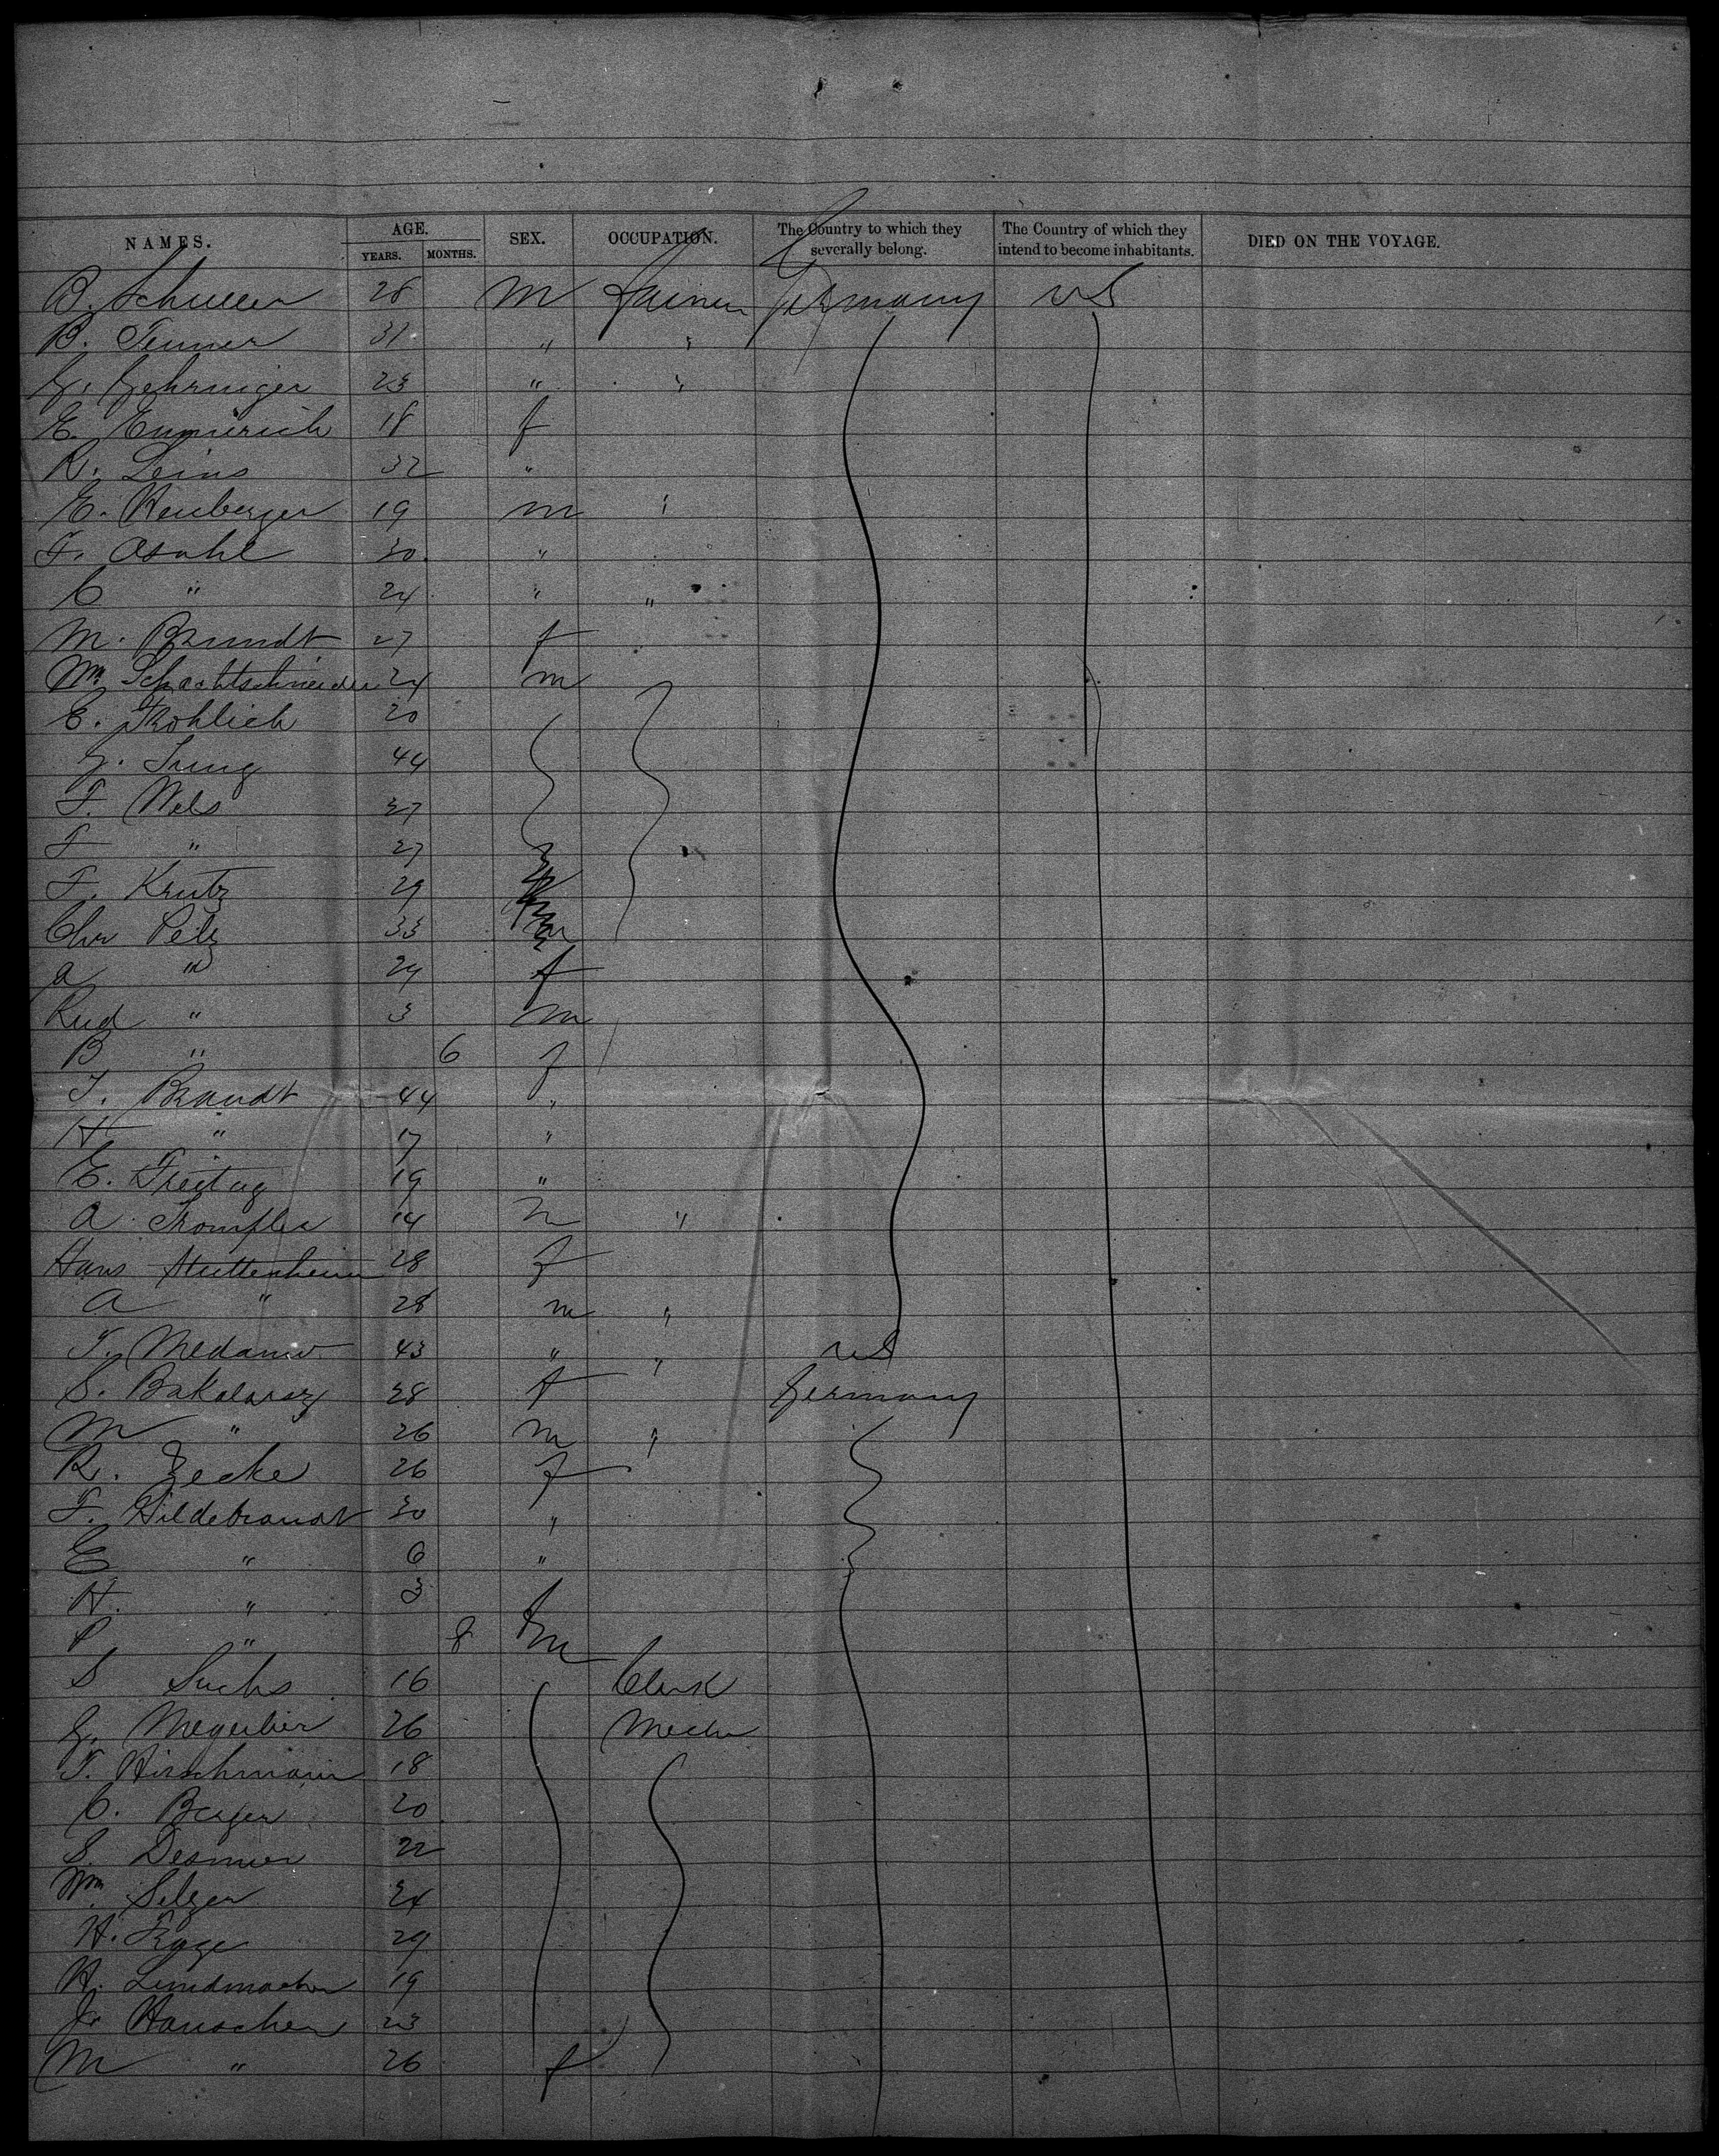 NAMES. AGE. SEX. OCCUPATION. The Country to which they severally belong. The Country of which they intend to become inhabitants. DIED ON THE VOYAGE.
YEARS. MONTHS.
B. Schuller 28 m Germany US
B. Tenner 31 " "
G. Gehringer 23 " "
E. Emmerich 18 f
R. Leins 32 "
E. Heuberger 19 m "
F. 30 "
C " 24 " "
M. Brandt 27 f
Wm Schachtschneider 24 m
E. Frohlich 20
G. Jung 44
F. Wels 37
F " 27
F. Krutz 29
Chr Pelz 33 m
A " 24 f
Rud " 3 m
B " 6 f
T. Brandt 44 "
H " 17 "
E. Freitag 19 "
A. 14 m "
Hans 28 f
A " 28 m "
T. 43 " " US
S. Bakalarsz 28 f Germany
M " 26 m "
R. Zecke 26 f
F. Hildebrandt 30 "
E " 6 "
H. " 3
P " 8 m
S Sachs 16 Clerk
G. 26 Mechc
T. Hirschmann 18
C. Berger 20
S. 22
Wm Selzer 24
H. 29
H. 19
Hauschen 23
M " 26 f